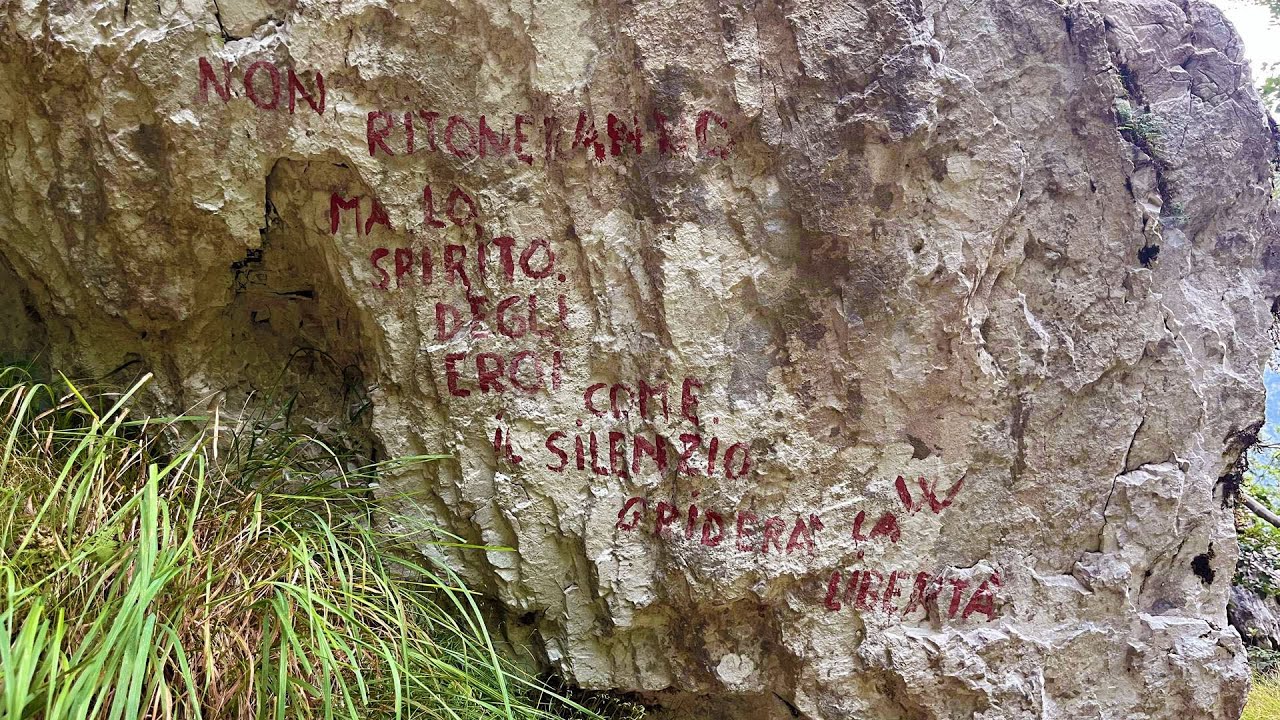 NON
RITONERANNO
MA LO
SPIRITO.
DEGLI
EROI
COME
IL SILENZIO
W
GRIDERA' LA
LIBERTÀ